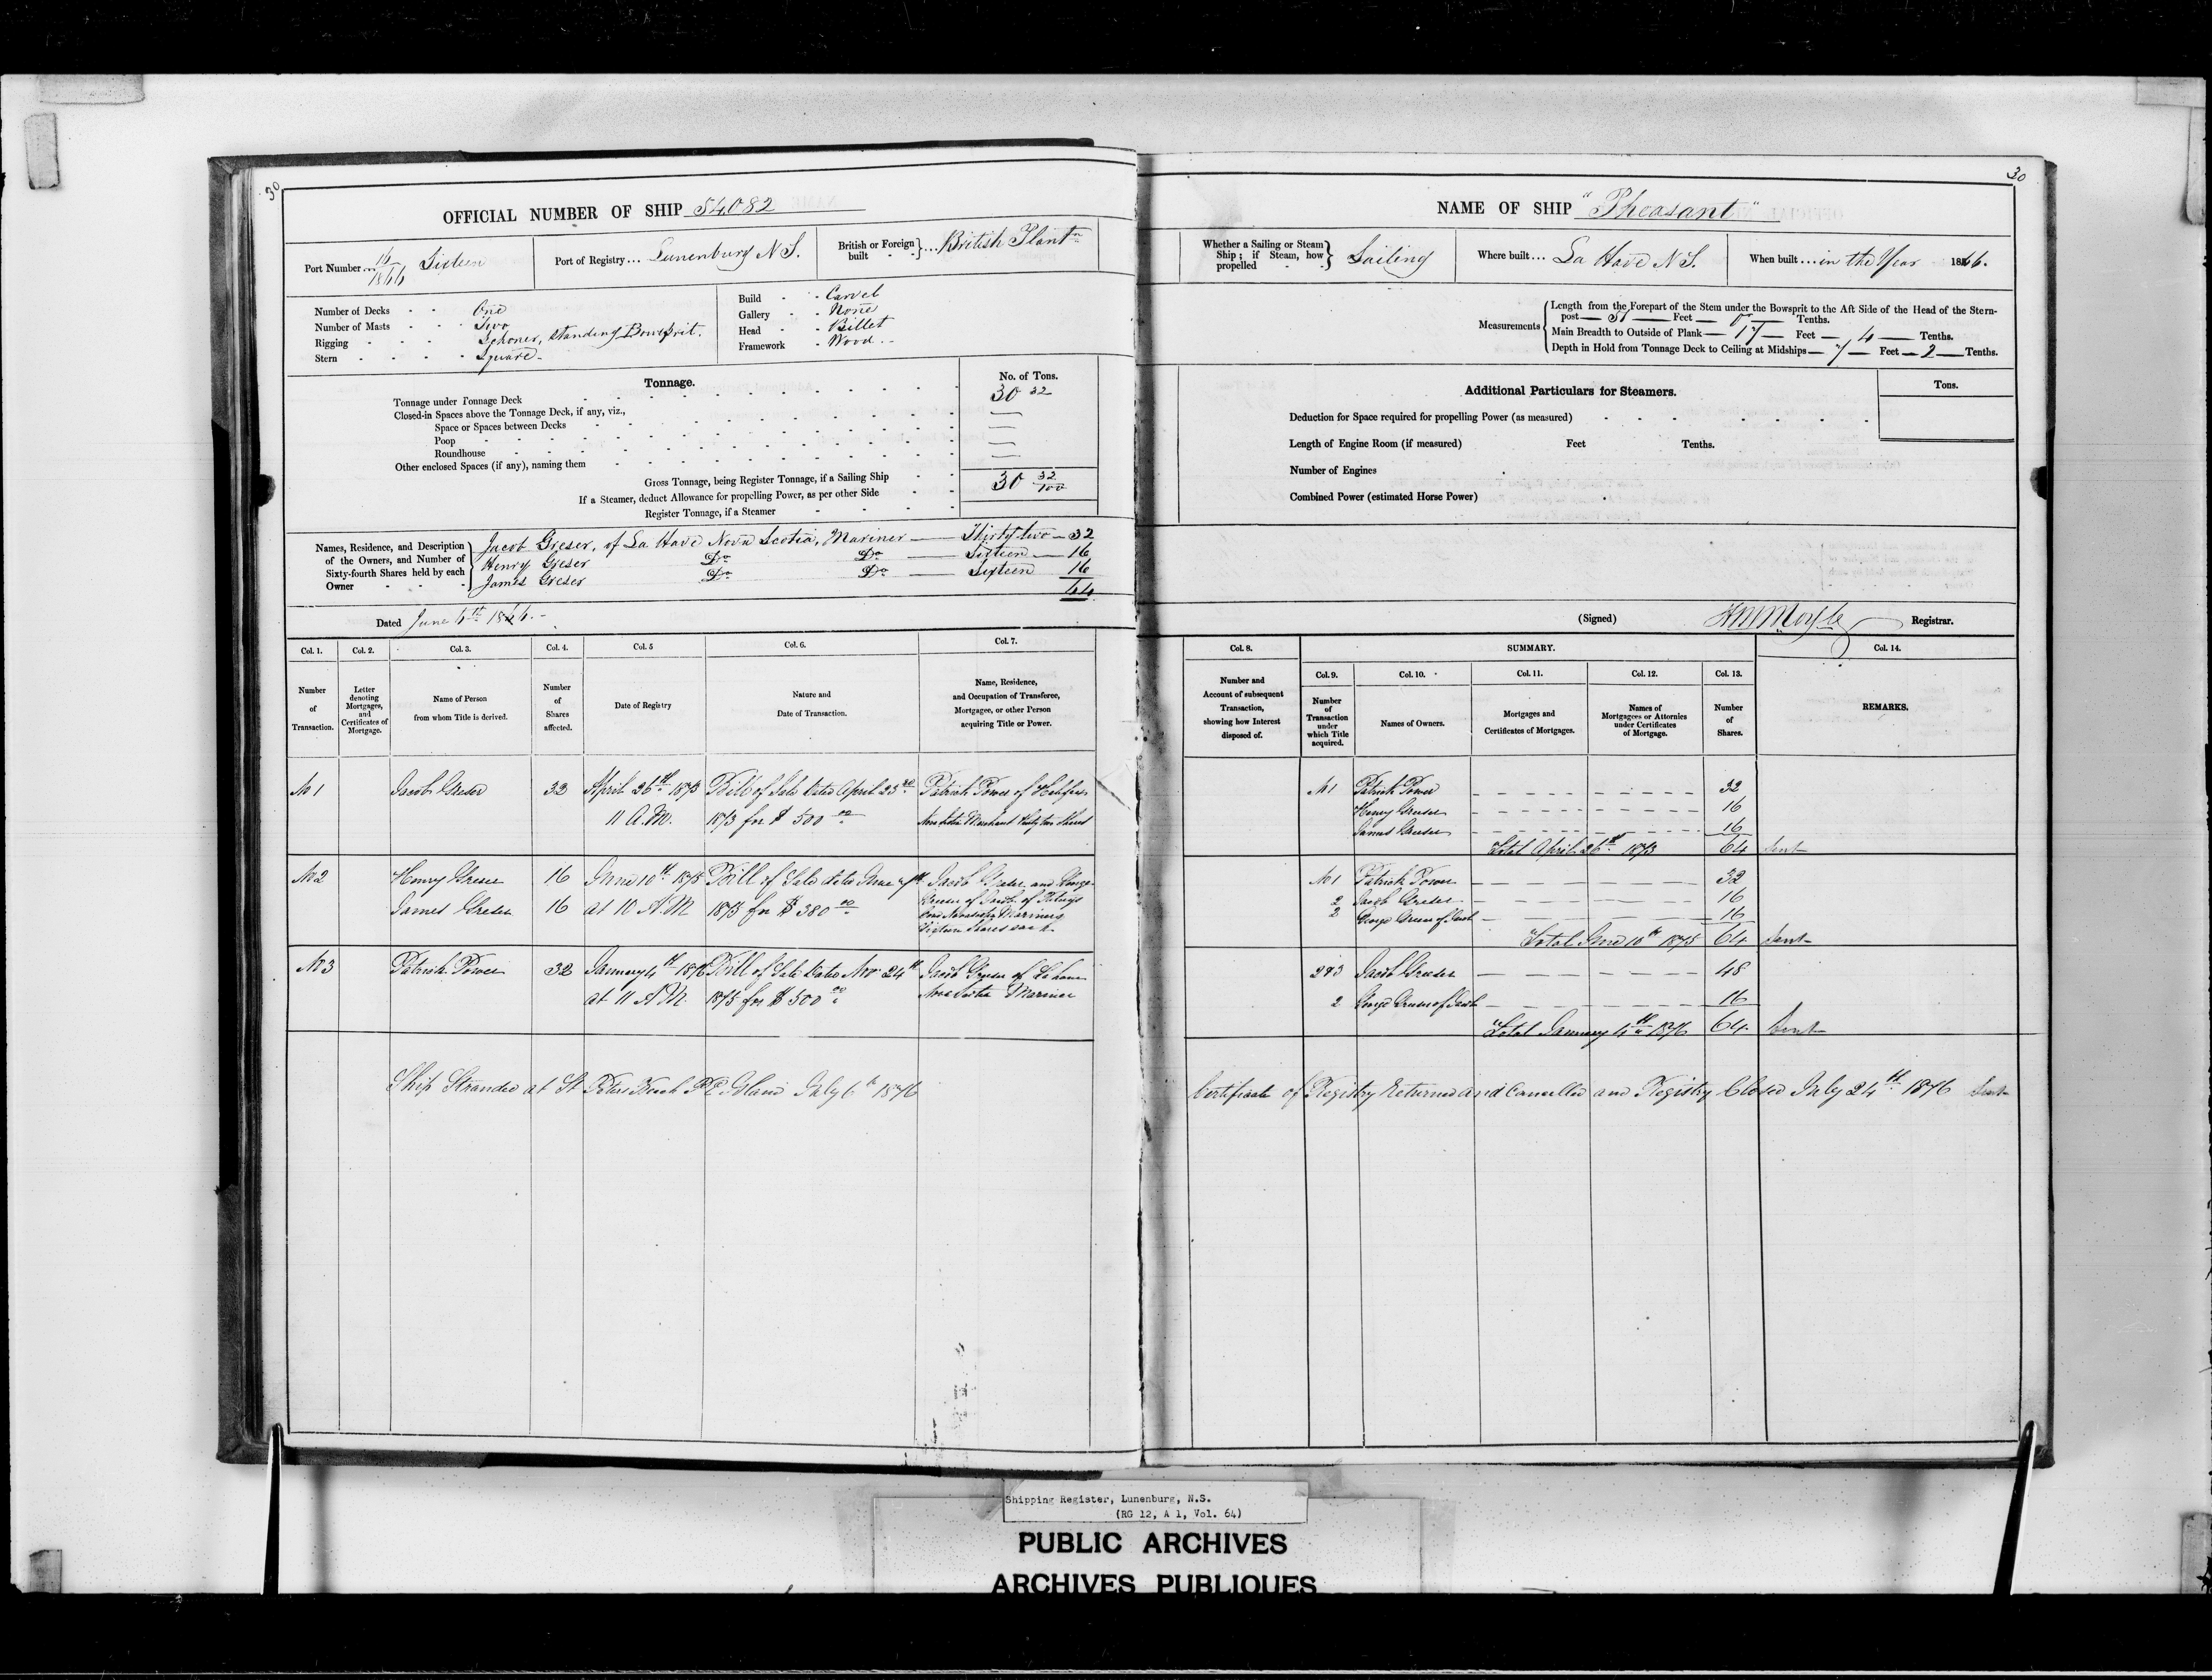 30
OFFICIAL NUMBER OF SHIP 54082
Port Number 16/1866 Sixteen
Port of Registry... Lunenburg N S.
British or Foreign built } ... British Plantn
Number of Decks One
Number of Masts Two
Rigging Schoner, Standing Bowsprit.
Stern Square
Build Carvel
Gallery None
Head Billet
Framework Wood
Tonnage.
No. of Tons.
Tonnage under Tonnage Deck 30 32
Closed-in Spaces above the Tonnage Deck, if any, viz.,
Space or Spaces between Decks
Poop
Roundhouse
Other enclosed Spaces (if any), naming them
Gross Tonnage, being Register Tonnage, if a Sailing Ship 30 32/100
If a Steamer, deduct Allowance for propelling Power, as per other Side
Register Tonnage, if a Steamer
Names, Residence, and Description of the Owners, and Number of Sixty-fourth Shares held by each Owner
Jacob Greser, of La Have Nova Scotia, Mariner — Thirty two — 32
Henry Greser Do Do — Sixteen — 16
James Greser Do Do — Sixteen 16
64
Dated June 6th 1866.
Col. 1. Col. 2. Col. 3. Col. 4. Col. 5 Col. 6. Col. 7.
Number of Transaction.
Letter denoting Mortgages, and Certificates of Mortgage.
Name of Person from whom Title is derived.
Number of Shares affected.
Date of Registry
Nature and Date of Transaction.
Name, Residence, and Occupation of Transferee, Mortgagee, or other Person acquiring Title or Power.
No 1 Jacob Greser 32 April 26th 1873 Bill of Sale Dated April 23rd Patrick Power of Halifax
11 A.M. 1873 for $ 500 00 Nova Scotia Merchant thirty two Shares
No 2 Henry Greser 16 June 10th 1875 Bill of Sale dated June Jacob Greser and George
James Greser 16 at 10 A.M 1875 for $ 380 00 Greser of Jacob of
Nova Scotia Mariners
Sixteen Shares each.
No 3 Patrick Power 32 January 4th 1876 Bill of Sale Dated Nov. 24th Jacob Greser of Lahave
at 11 A.M. 1875 for $ 500 00 Nova Scotia Mariner
Ship Stranded at St Peters P E Island July 6th 1876
30
NAME OF SHIP "Pheasant"
Whether a Sailing or Steam Ship; if Steam, how propelled } Sailing
Where built... La Have N S.
When built... in the Year 1866.
Measurements
Length from the Forepart of the Stem under the Bowsprit to the Aft Side of the Head of the Stern-
post — 51 — Feet — 0 — Tenths.
Main Breadth to Outside of Plank — 17 — Feet — 4 — Tenths.
Depth in Hold from Tonnage Deck to Ceiling at Midships — 7 — Feet — 2 — Tenths.
Additional Particulars for Steamers.
Tons.
Deduction for Space required for propelling Power (as measured)
Length of Engine Room (if measured) Feet Tenths.
Number of Engines
Combined Power (estimated Horse Power)
(Signed) Registrar.
Col. 8. SUMMARY. Col. 14.
Col. 9. Col. 10. Col. 11. Col. 12. Col. 13.
Number and Account of subsequent Transaction, showing how Interest disposed of.
Number of Transaction under which Title acquired.
Names of Owners.
Mortgages and Certificates of Mortgages.
Names of Mortgagees or Attornies under Certificates of Mortgage.
Number of Shares.
REMARKS.
No 1 Patrick Power 32
Henry Greser 16
James Greser 16
Total April 26th 1873 64 Sent
No 1 Patrick Power 32
2 Jacob Greser 16
2 George Greser of Jacob 16
Total June 10th 1875 64 Sent
2&3 Jacob Greser 48
2 George Greser of Jacob 16
Total January 4th 1876 64 Sent
Certificate of Registry Returned and Cancelled and Registry Closed July 24th 1876 Sent
Shipping Register, Lunenburg, N.S.
(RG 12, A 1, Vol. 64)
PUBLIC ARCHIVES
ARCHIVES PUBLIQUES